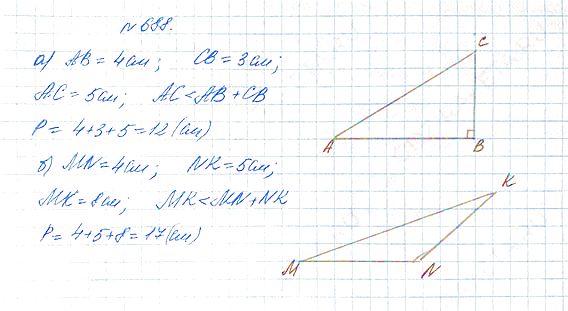 №688.
а) AB = 4см; CB = 3см;
AC = 5см; AC < AB + CB
P = 4+3+5 = 12 (см)
б) MN = 4см; NK = 5см;
MK = 8см; MK < MN + NK
P = 4+5+8 = 17 (см)
C
A
B
K
M
N